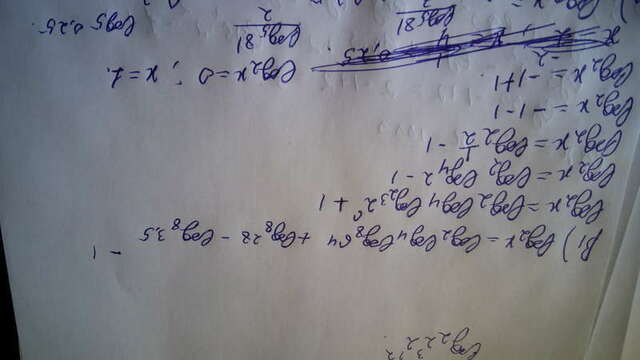 log₂2 2³·²
β₁) log₂x = log₂ log₄ log₈ 64 + log₈ 28 - log₈ 3,5 - 1
log₂x = log₂ log₄ log₂³ 2⁶ + 1
log₂x = log₂ log₄ 2 - 1
log₂x = log₂ 2 1/2 - 1
log₂x = -1 - 1
log₂x = -1+1
-2
log₂x = 0; x = 1.
0,25
log₅81
2
log₅81
2
log₅ 0,25